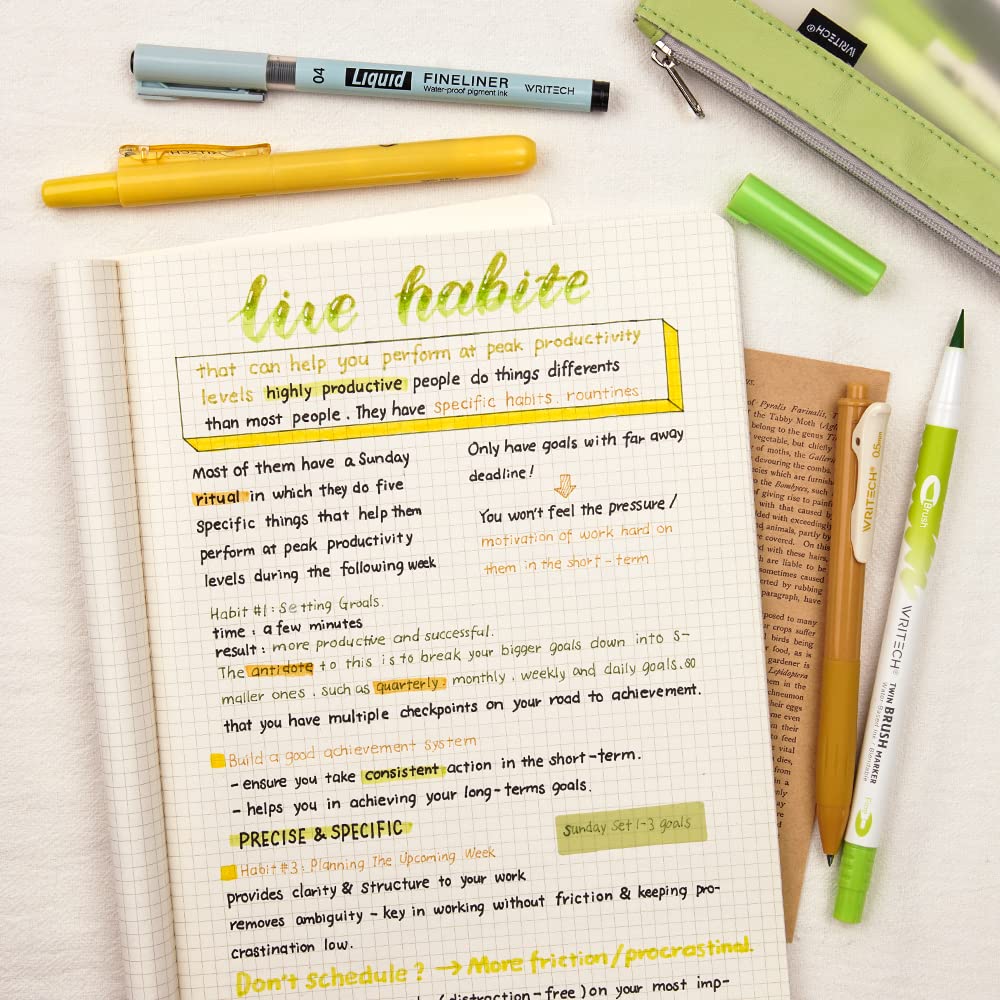 04 Liquid FINELINER WRITECH
Water-proof pigment ink
WRITECH®
WRITECH
live habite
that can help you perform at peak productivity
levels highly productive people do things differents
than most people. They have specific habits. rountines.
Most of them have a Sunday
ritual in which they do five
specific things that help them
perform at peak productivity
levels during the following week
Only have goals with far away
deadline!
You won't feel the pressure /
motivation of work hard on
them in the short-term
Habit #1: Setting Groals.
time: a few minutes
result: more productive and successful.
The antidote to this is to break your bigger goals down into s-
maller ones, such as quarterly, monthly, weekly and daily goals. so
that you have multiple checkpoints on your road to achievement.
Build a good achievement system
- ensure you take consistent action in the short-term.
- helps you in achieving your long-terms goals.
PRECISE & SPECIFIC
Sunday set 1-3 goals
Habit #3: Planning The Upcoming Week
provides clarity & structure to your work
removes ambiguity - key in working without friction & keeping pro-
crastination low.
Don't schedule? → More friction/procrastinal.
(distraction-free) on your most imp-
WRITECH® 0.5mm
Brush
WRITECH® TWIN BRUSH MARKER
Water Based Ink / Blendable
of Pyralis Farinalis,
the Tabby Moth
belong to the genus
vegetable, but chiefly
of moths, the
devouring the combs.
which are furnish
the Bombyces, such
of giving rise to painf
with that caused by
with exceedingly
animals, partly by
On this
with these hairs,
are liable to be
sometimes caused
by rubbing
paragraph, have
posed to many
crops suffer
birds being
food, as is
gardener is
Lepidoptera
them in the
their eggs
me even
their
to feed
vital
dies,
from
in a
only